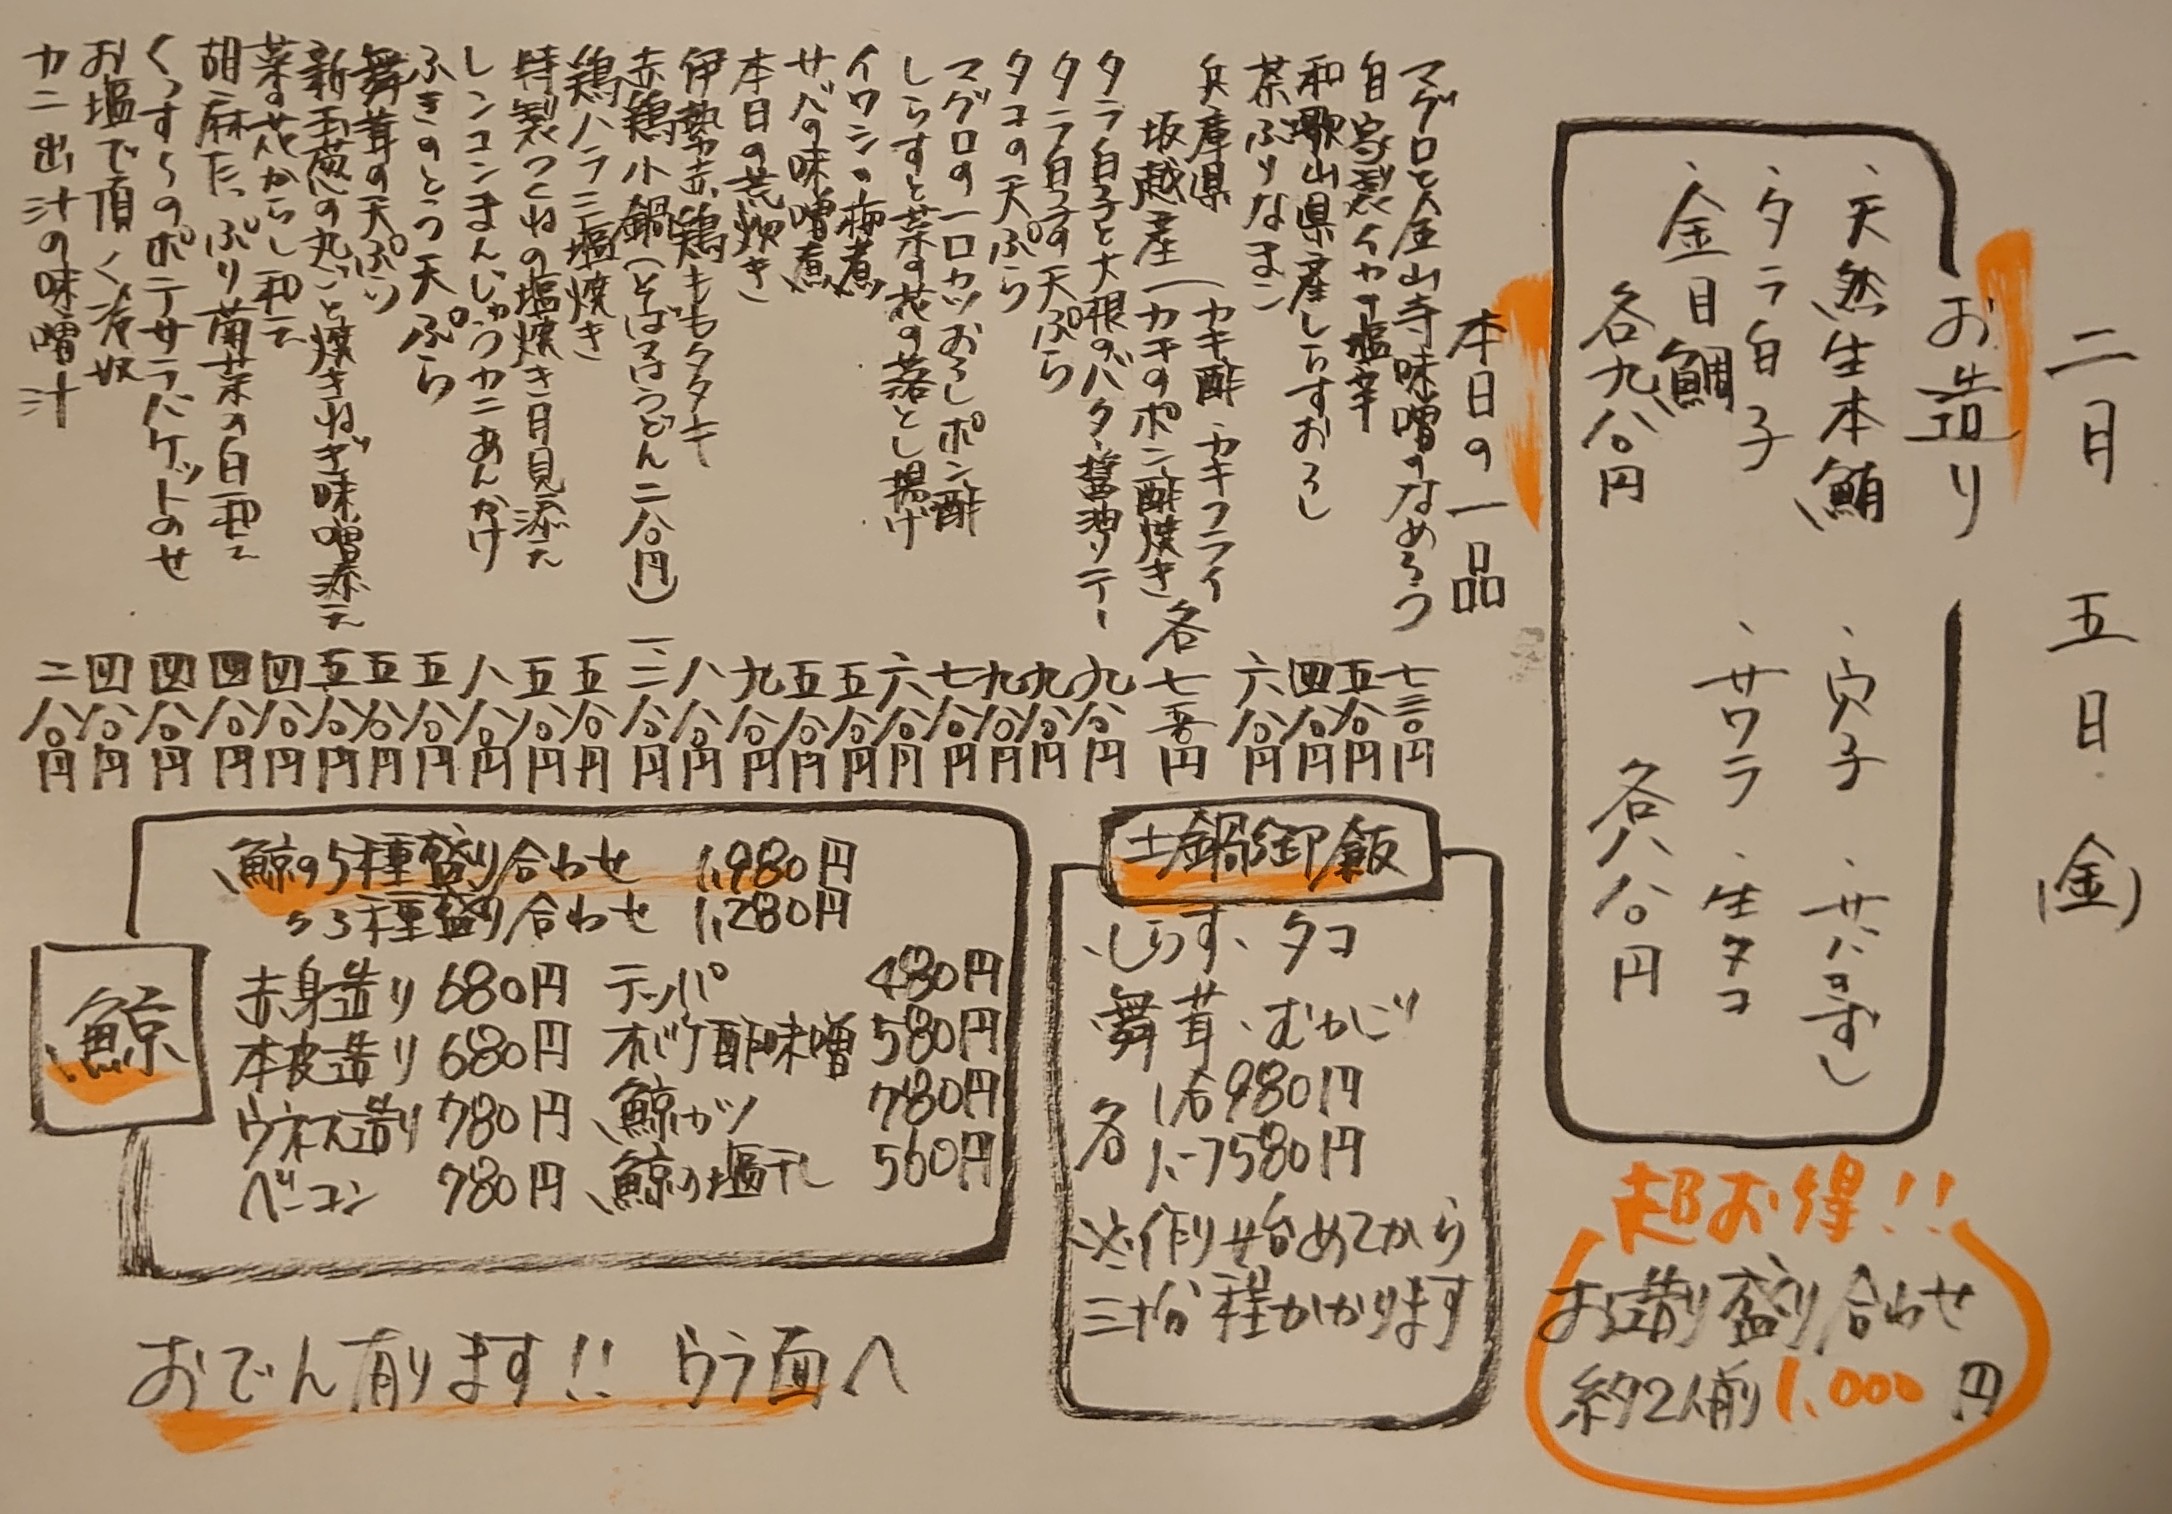 二月 五日 (金)
お造り
、天然生本鮪 、穴子 、サバきずし
、タラ白子 、サワラ 、生タコ
、金目鯛
各九八〇円 各八八〇円
本日の一品
マグロと金山寺味噌のなめろう 七三〇円
自家製イカの塩辛 五八〇円
和歌山県産しらすおろし 四八〇円
茶ぶりなまこ 六八〇円
兵庫県
坂越産 (カキ酢、カキフライ
カキのポン酢焼き 各七五〇円
タラ白子と大根のバター醤油ソテー 九八〇円
タラ白子の天ぷら 九八〇円
タコの天ぷら 九八〇円
マグロの一口カツおろしポン酢 七八〇円
しらすと菜の花の落とし揚げ 六八〇円
イワシの梅煮 五八〇円
サバの味噌煮 五八〇円
本日の荒炊き 九八〇円
伊勢赤鶏ももタタキ 八八〇円
赤鶏小鍋(そば又はうどん二八〇円) 一、二八〇円
鶏ハラミ塩焼き 五八〇円
特製つくねの塩焼き月見添え 五八〇円
レンコンまんじゅうカニあんかけ 八八〇円
ふきのとう天ぷら 五八〇円
舞茸の天ぷら 五八〇円
新玉葱の丸ごと焼きねぎ味噌添え 五八〇円
菜の花からし和え 四八〇円
胡麻たっぷり菊菜の白和え 四八〇円
くんすらのポテサラバケットのせ 四八〇円
お塩で頂く冷奴 四八〇円
カニ出汁の味噌汁 二八〇円
鯨
鯨の5種盛り合わせ 1,980円
〃3種盛り合わせ 1,280円
赤身造り 680円 テッパ 480円
本皮造り 680円 オバケ酢味噌 580円
ウネス造り 780円 鯨カツ 780円
ベーコン 780円 鯨の塩干し 560円
土鍋御飯
、しらす、タコ
舞茸、むかご
各 1合 980円
1.5 1580円
※作り始めてから
三十分程かかります
超お得!!
お造り盛り合わせ
約2人前 1,000円
おでん有ります!! ウラ面へ